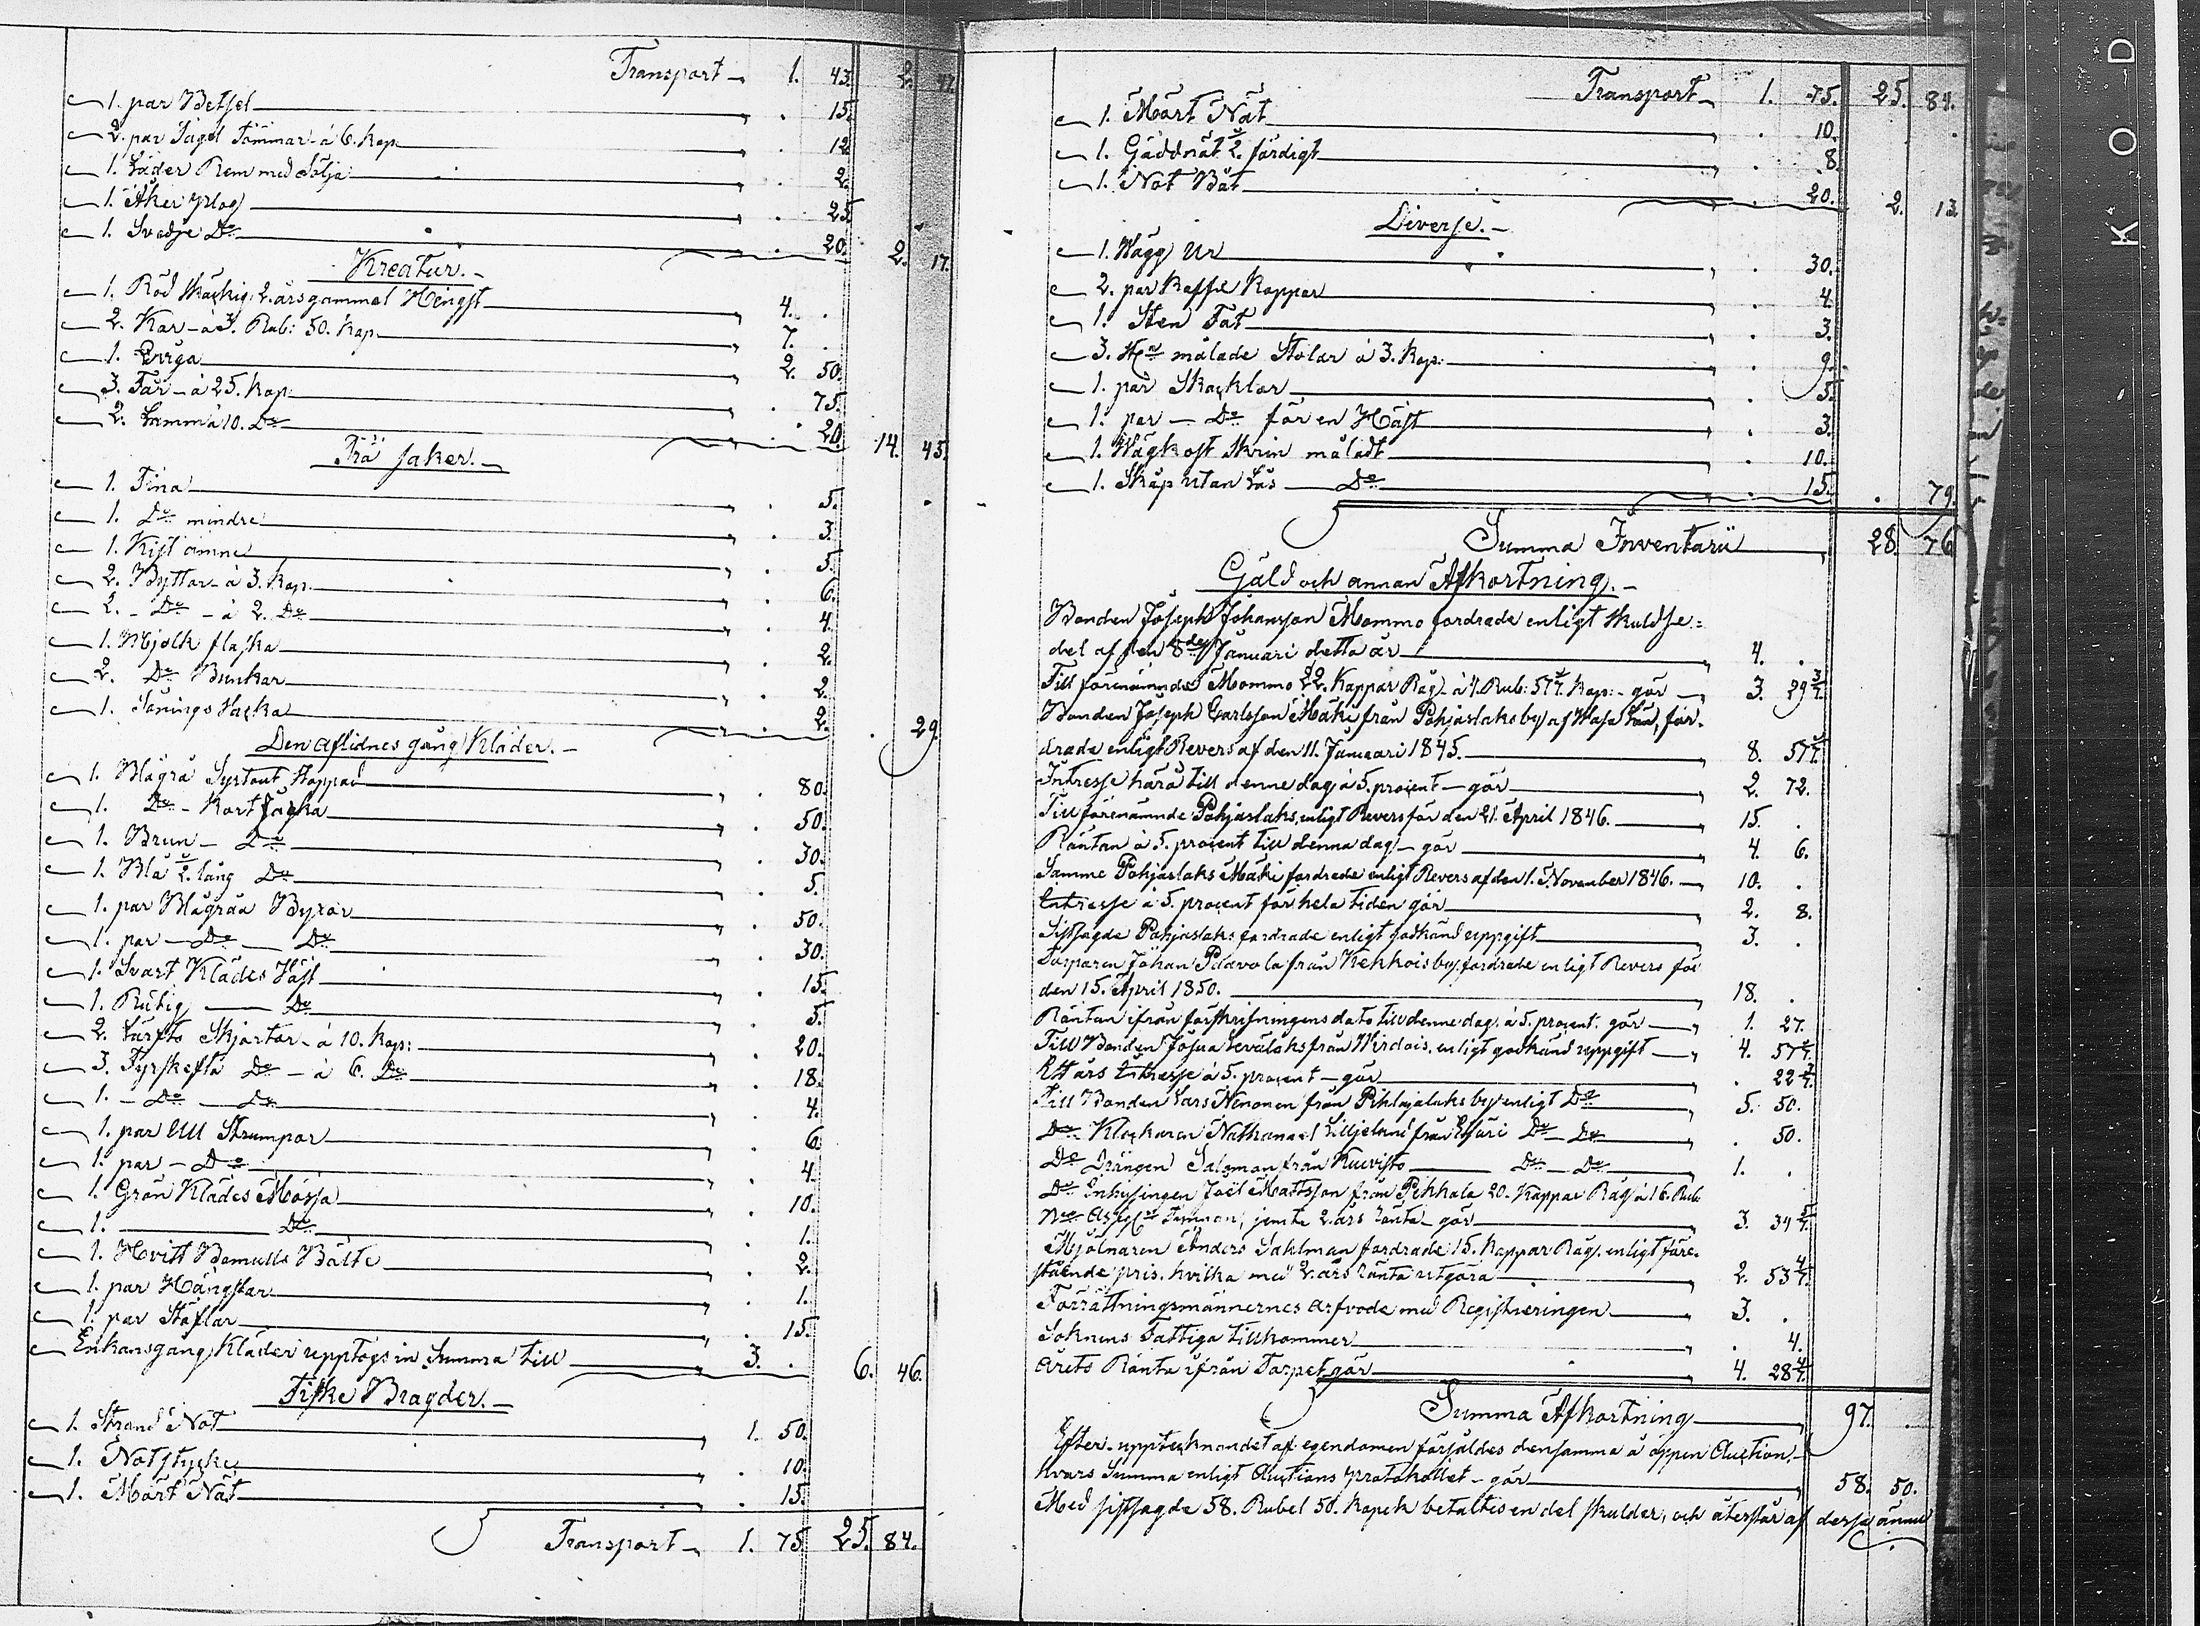 Transport 1. 43. 2. 47.
1. par Betsel 15.
2. par Tömmar à 6. kop. 12
1. Läder Rem med Sölja 2.
1. Åker plog 25
1. Svedje Do 20. 2. 17.
Kreatur.
1. Röd skäckig 2. års gammal Hingst 4. .
2. Kor à 3. Rub: 50. kop. 7. .
1. Qviga 2. 50.
3. Får à 25. kop: 75.
2. Lamm à 10. Do 20. 14. 45.
Trä saker.
1. Tina 5.
1. Do mindre 3.
1. Kist ämne 5.
2. Byttor à 3. kop. 6.
2. Do à 2. Do 4.
1. Mjölk flaska 2.
2. Do Bunkar 2.
1. 2. . 29.
Den aflidnes gång Kläder.
1. Blågrå Syrtout 80.
1. Do Kort Jacka 50.
1. Brun Do 30.
1. Blå ½ lång Do 5.
1. par Blågråa Byxor 50.
1. par Do Do 30.
1. Svart Klädes Väst 15.
1. Rutig Do 5.
2. Lärfts Skjortor à 10. Kop: 20.
3. Fyrskefta Do à 6. Do 18.
1. Do Do 4.
1. par Ull Strumpor 6.
1. par Do 4.
1. Grön Klädes Mössa 10.
1. Do 1.
1. Hvitt Bomulls Bälte 2.
1. par Hängslar 1.
1. par Stöflar 15.
Enkans gång Kläder upptogs in Summa till 3. . 6. 46.
Fiske Bragder.
1. Strand Not 1. 50.
1. Notstycke 10.
1. Mört Nät 15.
Transport 1. 75. 25. 84.
Transport 1. 75. 25. 84.
1. Mört Nät 10.
1. Gäddnät ½ färdigt 8.
1. Not Båt 20. 2. 13.
Diverse.
1. Wägg Ur 30.
2. par Kaffe Koppar 4.
1. Sten Fat 3.
3. målade Stolar à 3. Kop: 9.
1. par Skacklor 5.
1. par Do för en Häst 3.
1. Wägkost Skrin måladt 10.
1. Skåp utan Lås Do 15. . 79.
Summa Inventarii 28. 76
Gäld och annan Afkortning.
Bonden Joseph Johansson Mommo fordrade enligt Skuldse=
del af den 8de Januari detta år 4. .
Till förenämnde Mommo 22. Kappar Råg à 4. Rub: 57 1/7. kop: gör 3. 29 3/7.
Bonden Joseph Carlsson Mäki från Pohjaslaks by af Wasa Län, for-
drade enligt Revers af den 11. Januari 1845. 8. 57 1/7.
Intresse härå till denne dag à 5. procent gör 2. 72.
Till förenämnde Pohjaslaks, enligt Revers för den 21. April 1846. 15. .
Räntan à 5. procent till denna dag gör 4. 6.
Samme Pohjaslaks Mäki fordrade enligt Revers af den 1. November 1846. 10. .
Intresse à 5. procent för hela tiden gör 2. 8.
Sistsagde Pohjaslaks fordrade enligt godkänd uppgift 3. .
Torparen Johan från by fordrade enligt Revers för
den 15. April 1850. 18. .
Räntan ifrån förskrifningens dato till denne dag, à 5. procent. gör 1. 27.
Till Bonden Josua från Wirdois, enligt godkänd uppgift 4. 57 1/7.
Ett års Intresse à 5. procent gör . 22 6/7.
Till Bonden Lars Nenonen från Pihlajalaks by enligt Do 5. 50.
Do Klockaren Nathanael från Do Do . 50.
Do Drängen Salomon från Kuivisto Do Do 1. .
Do Inhysingen Joël Mattsson från Pihkala 20. Kappar Råg à 16. Rub
jemte 2. års Ränta gör 3. 34 5/7.
Mjölnaren Anders Sahlman fordrade 15. Kappar Råg, enligt före-
stående pris, hvilka med 2. års Ränta utgöra 2. 53 4/7.
Förrättningsmännernes Arfvode med Registreringen 3. .
Soknens Fattiga tillkommer . 4.
Årets Ränta ifrån Torpet gör 4. 28 4/7.
Summa Afkortning 97. .
Efter upptecknandet af egendomen försåldes densamma å öppen Auction,
hvars Summa enligt Auctions protokollet gör 58. 50.
Med sistsagde 58. Rubel 50. Kopek betaltes en del skulder, och återstår af dessa ännu
K O D